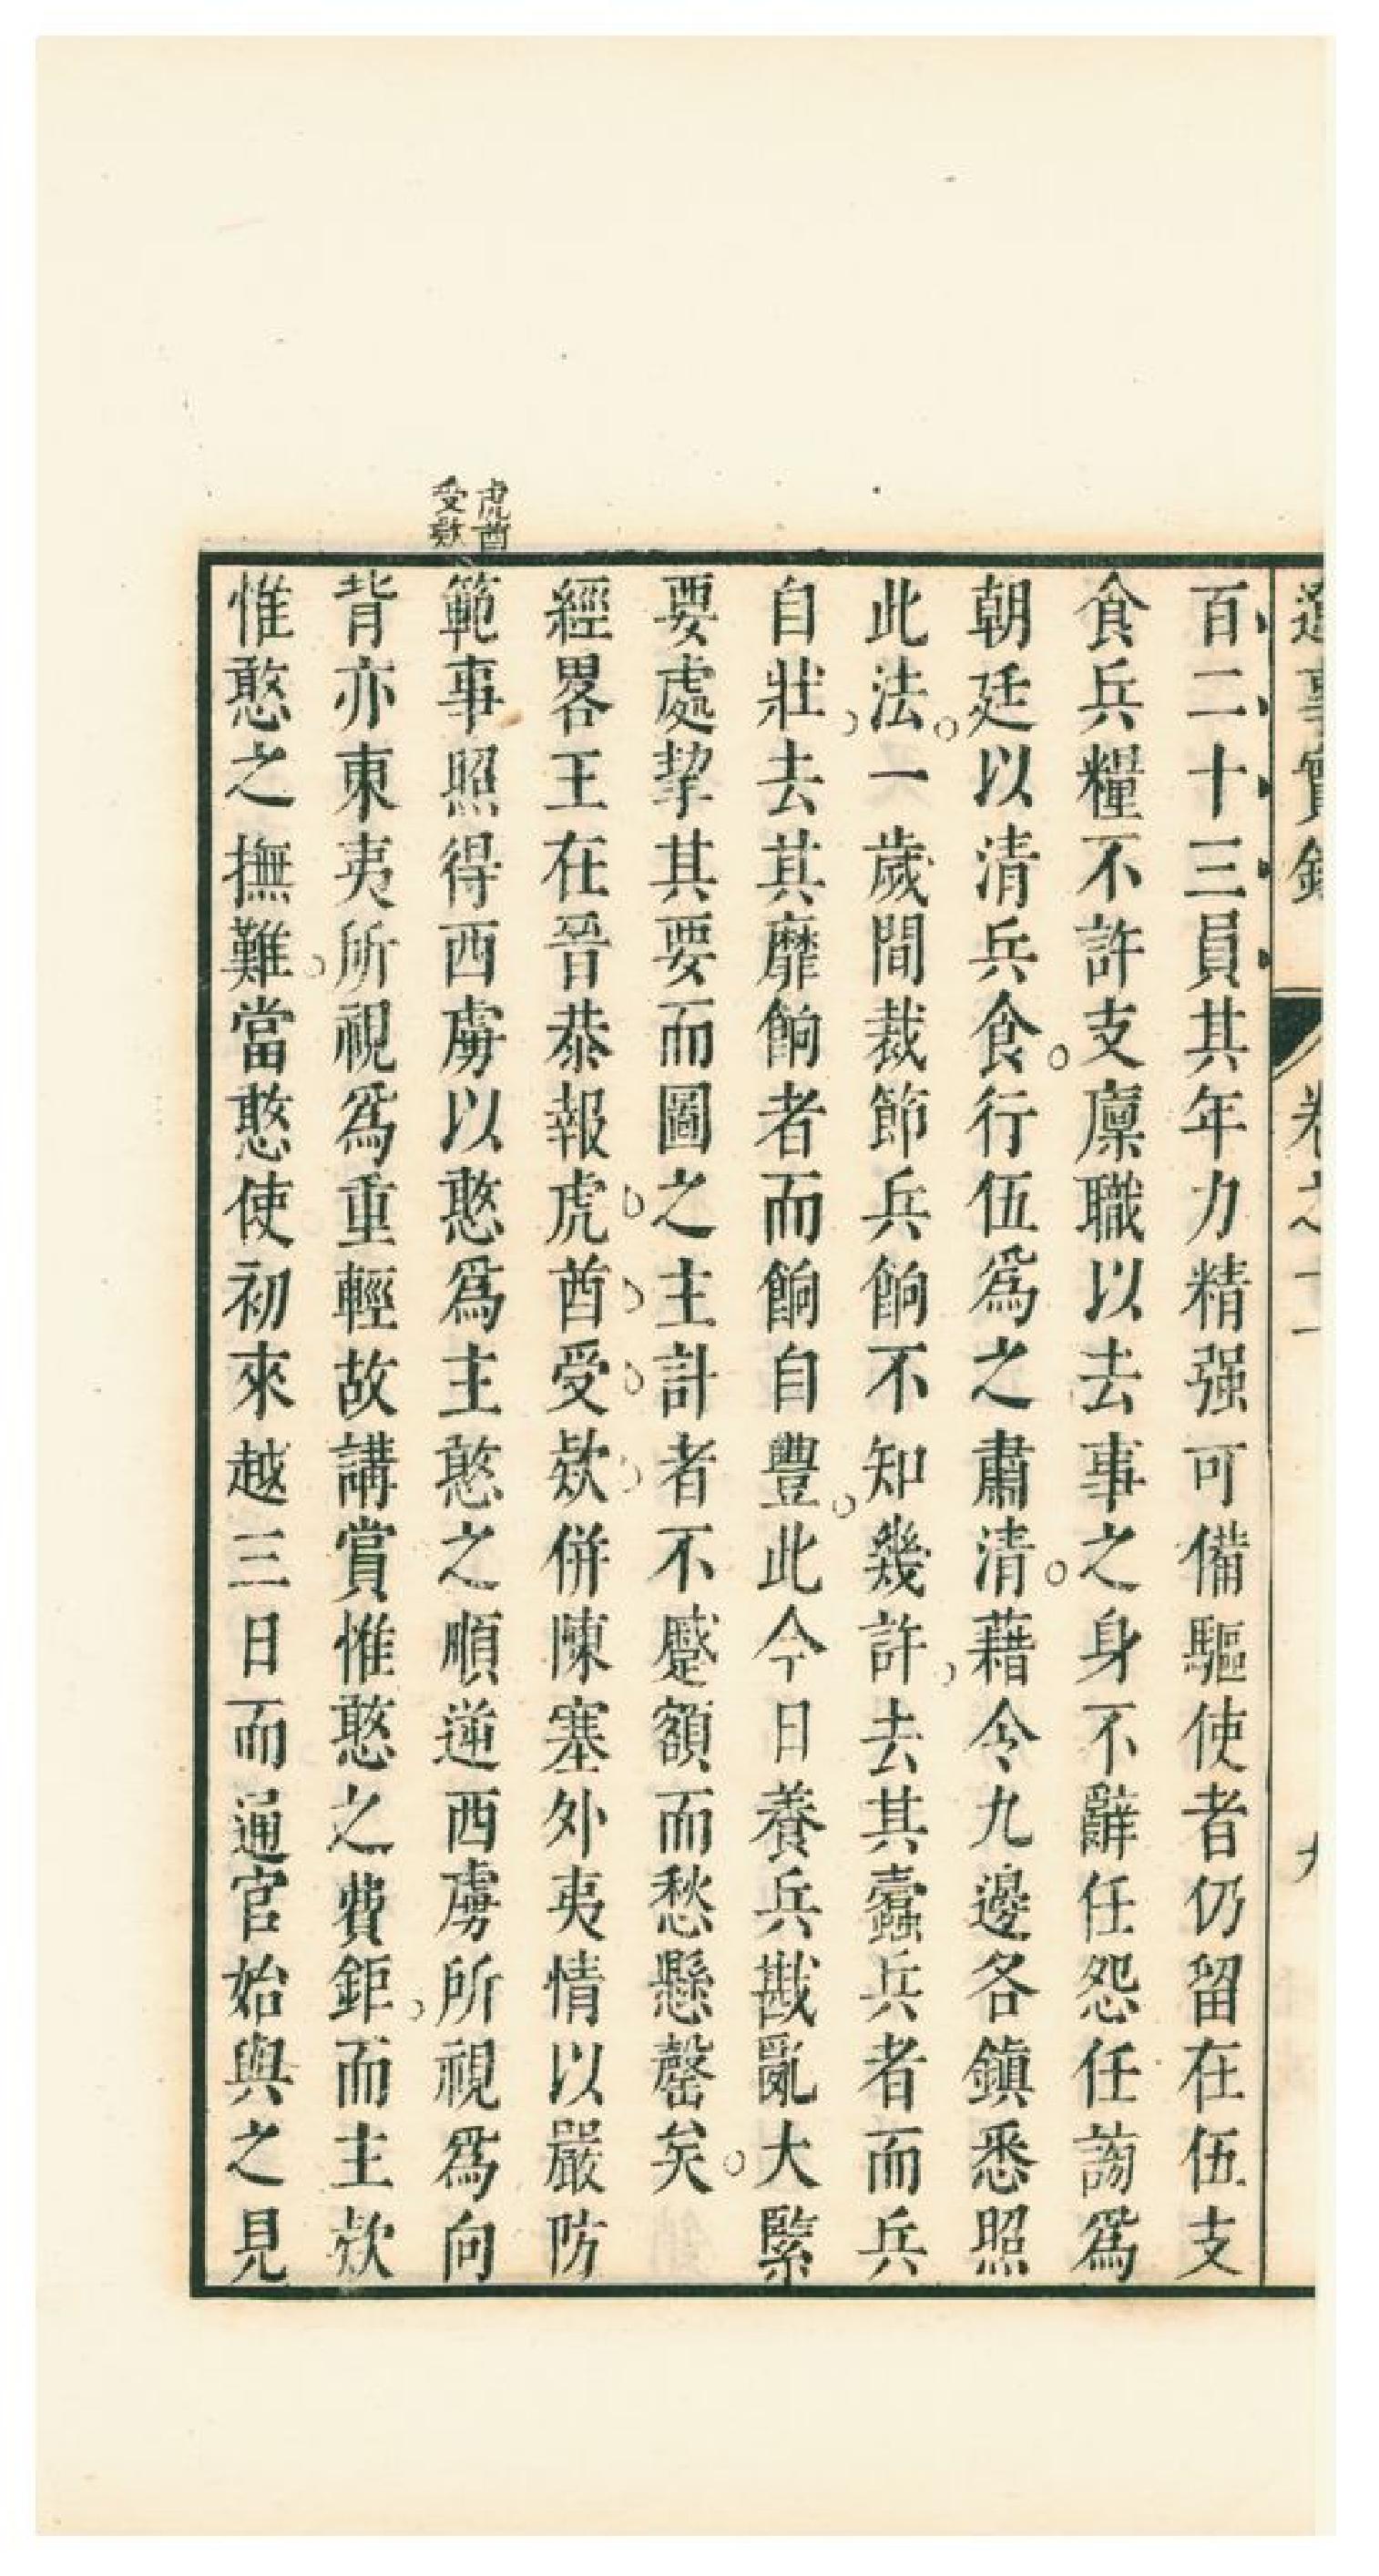 百二十三員其年力精强可備驅使者仍留在伍支
食兵糧不許支廩職以去事之身不辭任怨任謗爲
朝廷以清兵食行伍爲之肅清藉令九邊各鎮悉照
此法一歲間裁節兵餉不知幾許去其蠹兵者而兵
自壯去其靡餉者而餉自豐此今日養兵戡亂大緊
要處挈其要而圖之主計者不蹙額而愁懸罄矣
經畧王在晉恭報虎酋受欵併陳塞外夷情以嚴防
虎酋
受欵
範事照得西虜以憨爲主憨之順逆西虜所視爲向
背亦東夷所視爲重輕故講賞惟憨之費鉅而主欵
惟憨之撫難當憨使初來越三日而通官始與之見